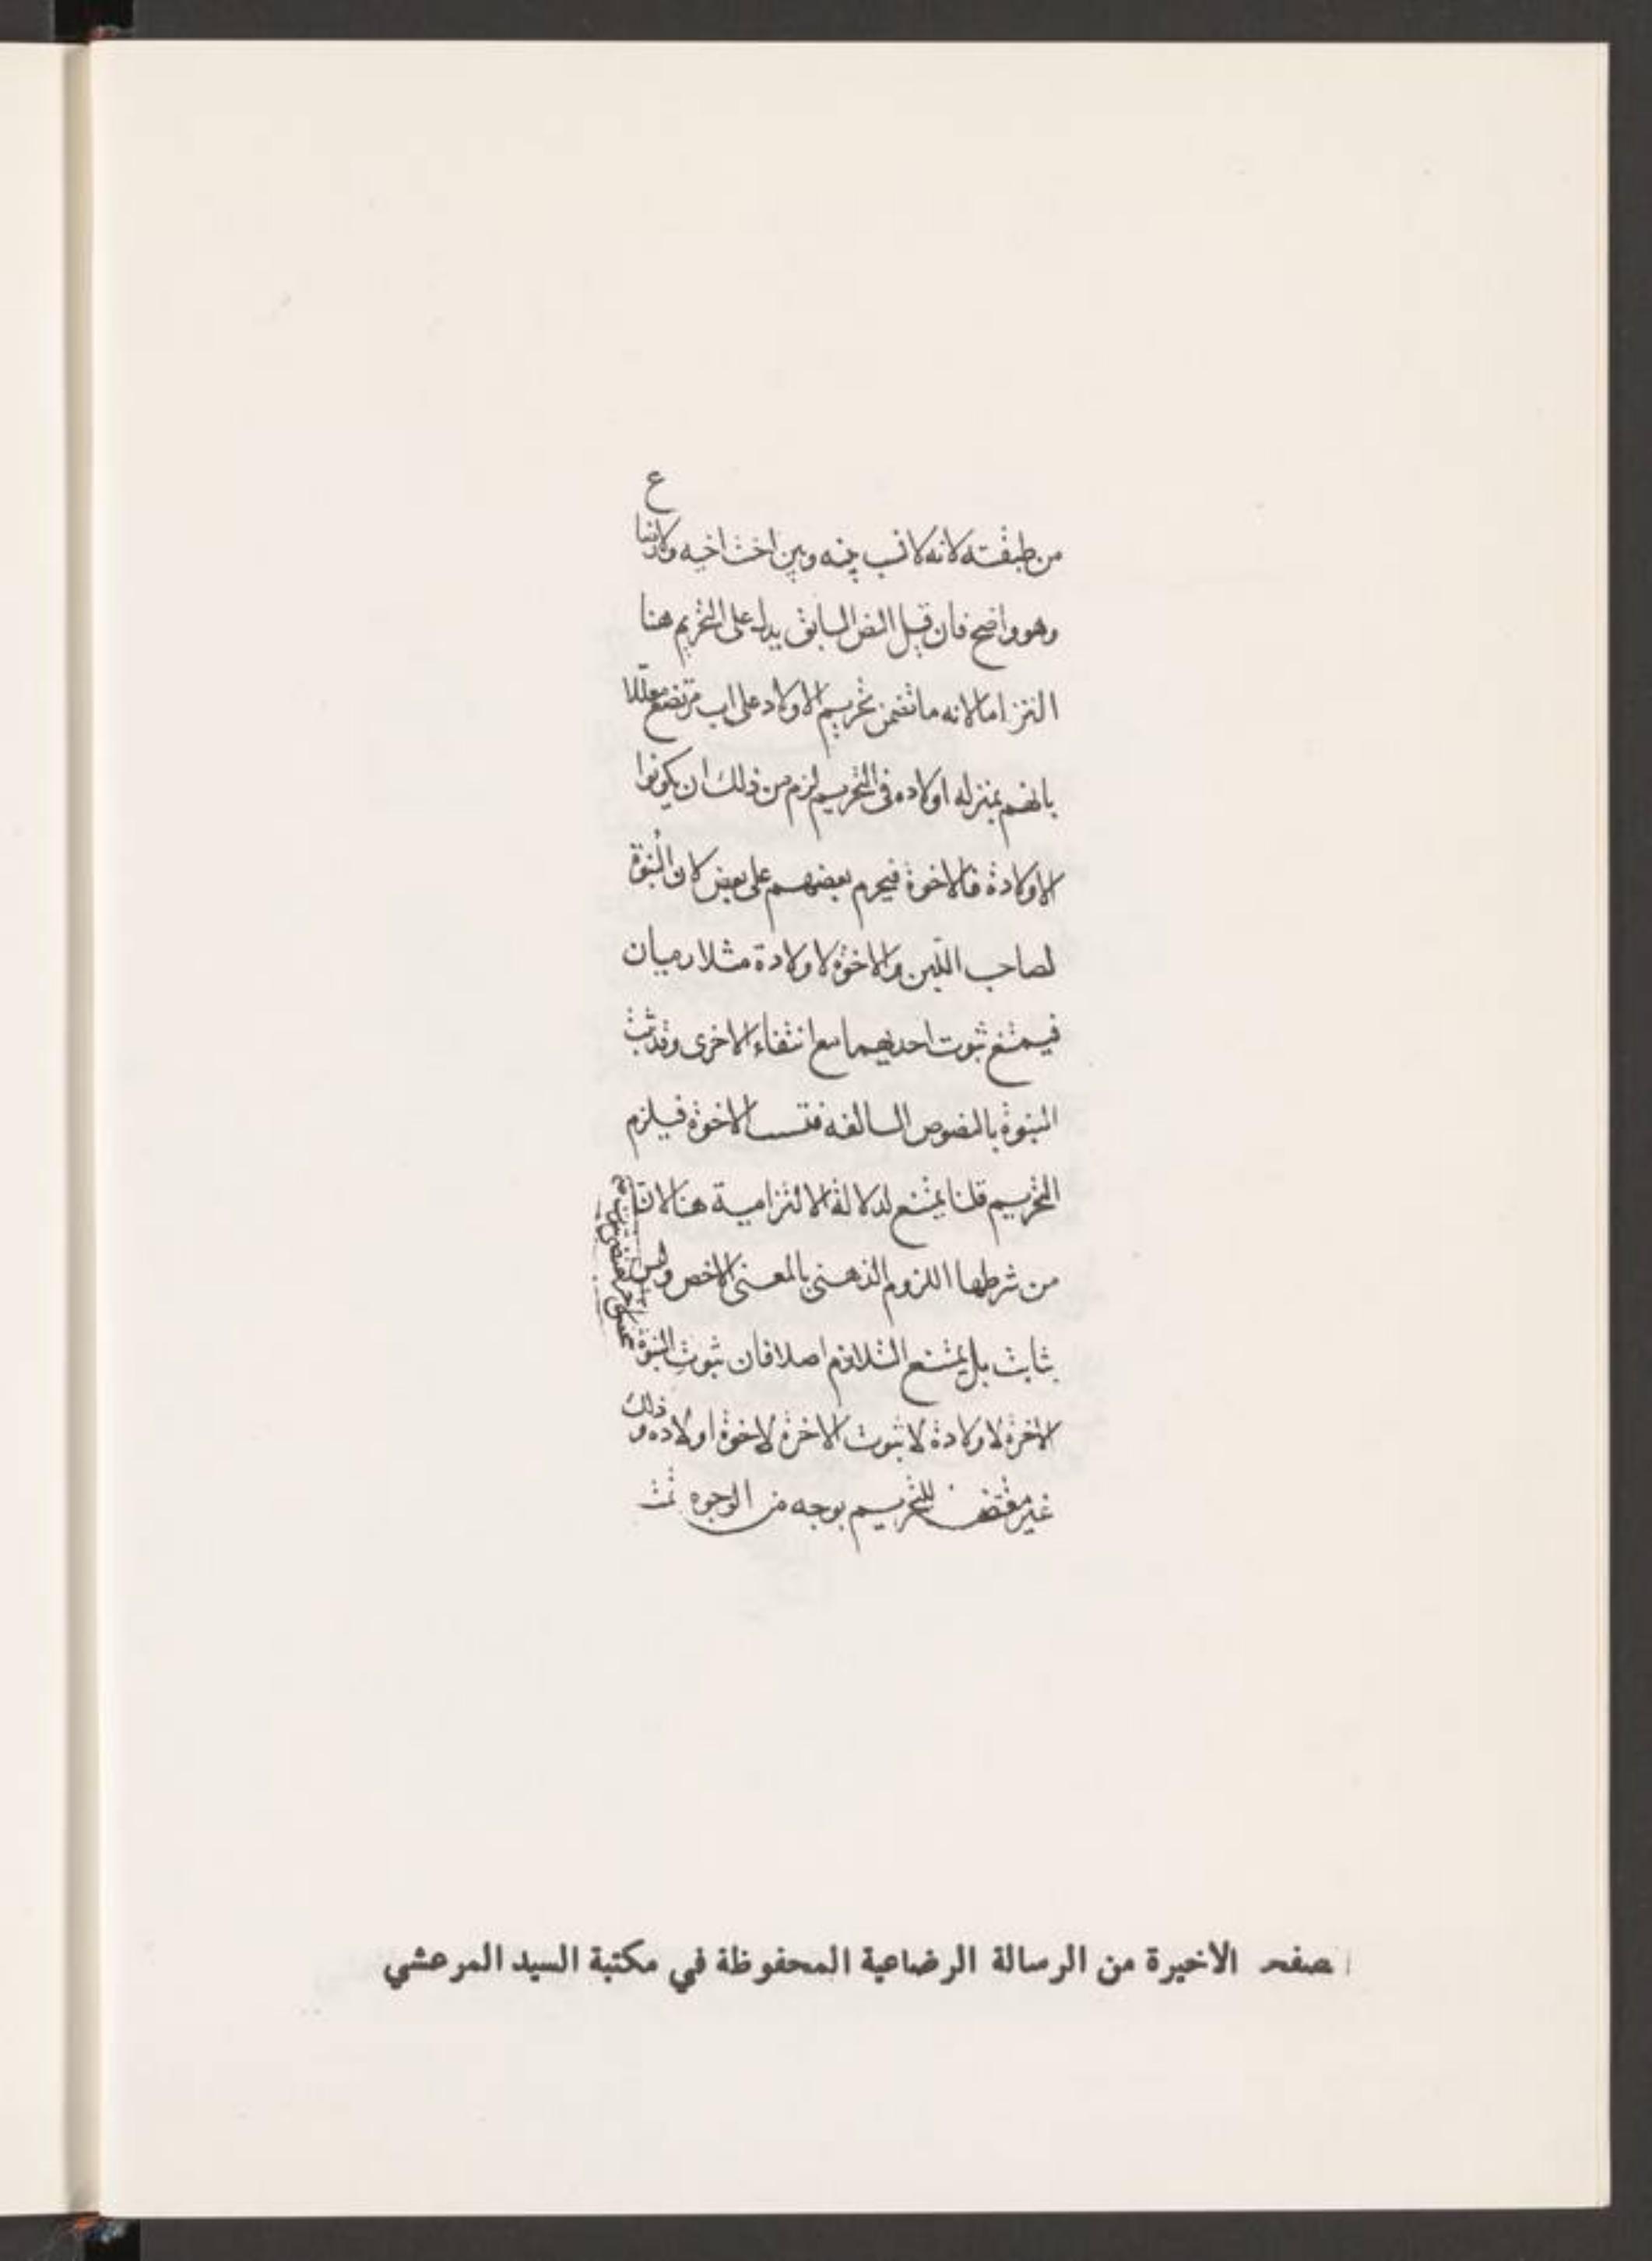 ع
من طبقته لانه لا نسب بينه وبين اخت اخيه ولا رضاع
وهو واضح فان قيل النص السابق يدل على التحريم هنا
التزاما لانه ما تضمن تحريم الاولاد على اب مرتضع معللا
بانهم بمنزله اولاده في التحريم لزم من ذلك ان يكونوا
لاولاده كالاخوة فيحرم بعضهم على بعض لان البنوة
لصاحب اللبن والاخوة لاولاده متلازمان
فيمتنع ثبوت احديهما مع انتفاء الاخرى وقد ثبت
البنوة بالنصوص السالفه فتثبت الاخوة فيلزم
التحريم قلنا يمتنع لدلالة الالتزامية هنا لان
من شرطها اللزوم الذهني بالمعنى الاخص وليس
بثابت بل يمتنع التلازم اصلا فان ثبوت البنوة
الاخوة لاولاده لا ثبوت الاخوة لاخوة اولاده و ذلك
غير مقتض للتحريم بوجه من الوجوه تمت
صفحه الاخيرة من الرسالة الرضاعية المحفوظة في مكتبة السيد المرعشي